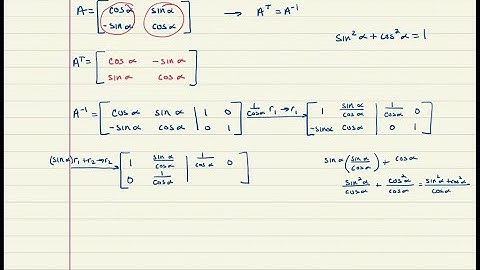 A = [ cos α sin α ; -sin α cos α ] → Aᵀ = A⁻¹
sin²α + cos²α = 1
Aᵀ = [ cos α -sin α ; sin α cos α ]
A⁻¹ = [ cos α sin α | 1 0 ; -sin α cos α | 0 1 ] 1/cos α r₁ → r₁ [ 1 sin α/cos α | 1/cos α 0 ; -sin α cos α | 0 1 ]
(sin α) r₁ + r₂ → r₂ [ 1 sin α/cos α | 1/cos α 0 ; 0 1/cos α | ]
sin α (sin α/cos α) + cos α
sin²α/cos α + cos²α/cos α = sin²α + cos²α/cos α